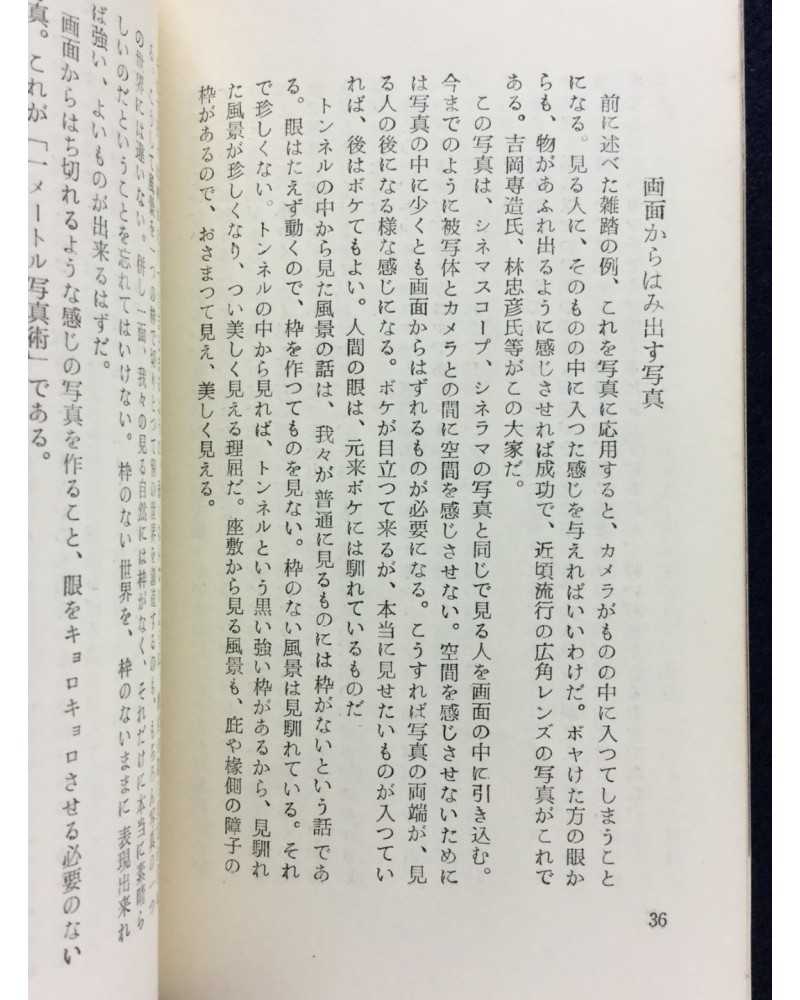 画面からはみ出す写真
前に述べた雑踏の例、これを写真に応用すると、カメラがものの中に入つてしまうこと
になる。見る人に、そのものの中に入つた感じを与えればいいわけだ。ボヤけた方の眼か
らも、物があふれ出るように感じさせれば成功で、近頃流行の広角レンズの写真がこれで
ある。吉岡専造氏、林忠彦氏等がこの大家だ。
この写真は、シネマスコープ、シネラマの写真と同じで見る人を画面の中に引き込む。
今までのように被写体とカメラとの間に空間を感じさせない。空間を感じさせないために
は写真の中に少くとも画面からはずれるものが必要になる。こうすれば写真の両端が、見
る人の後になる様な感じになる。ボケが目立つて来るが、本当に見せたいものが入つてい
れば、後はボケてもよい。人間の眼は、元来ボケには馴れているものだ
トンネルの中から見た風景の話は、我々が普通に見るものには枠がないという話であ
る。眼はたえず動くので、枠を作つてものを見ない。枠のない風景は見馴れている。それ
で珍しくない。トンネルの中から見れば、トンネルという黒い強い枠があるから、見馴れ
た風景が珍しくなり、つい美しく見える理屈だ。座敷から見る風景も、庇や椽側の障子の
枠があるので、おさまつて見え、美しく見える。
36
の世界には違いない。併し一面、我々の見る自然には枠がなく、それだけに本当に素晴ら
しいのだということを忘れてはいけない。枠のない世界を、枠のないままに表現出来れ
ば強い、よいものが出来るはずだ。
画面からはち切れるような感じの写真を作ること、眼をキョロキョロさせる必要のない
真。これが「一メートル写真術」である。